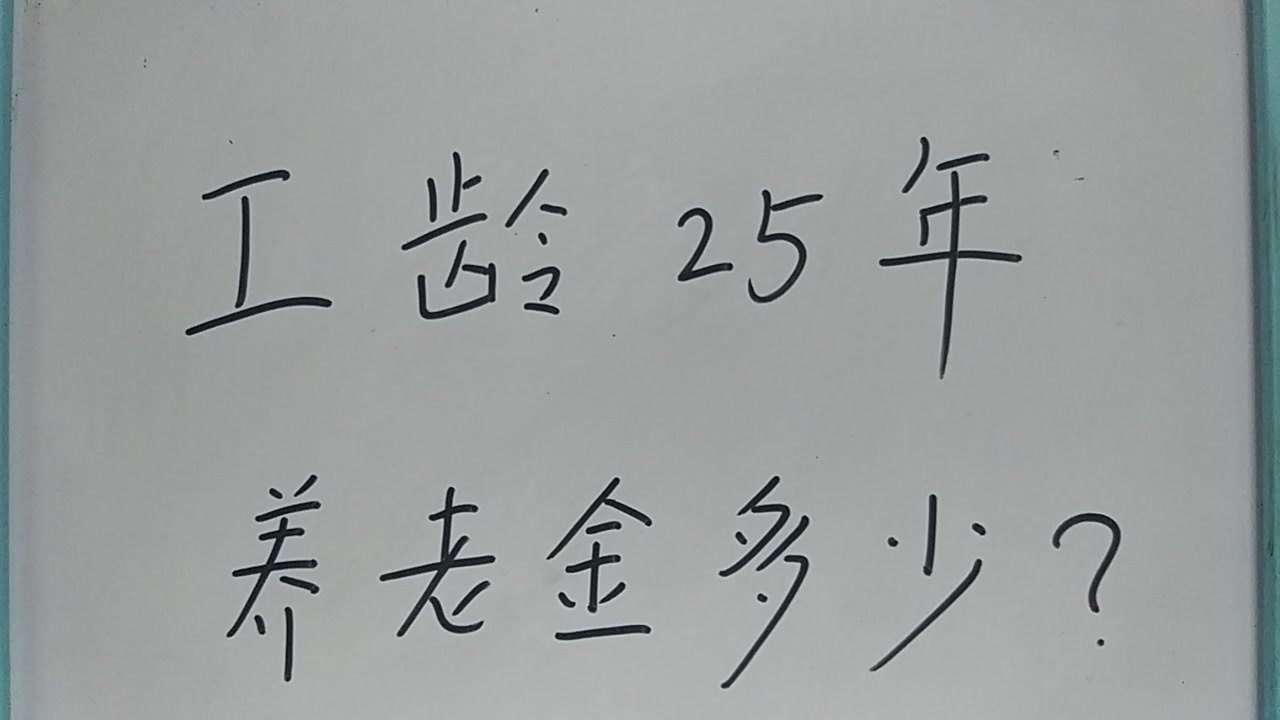 工龄25年
养老金多少?